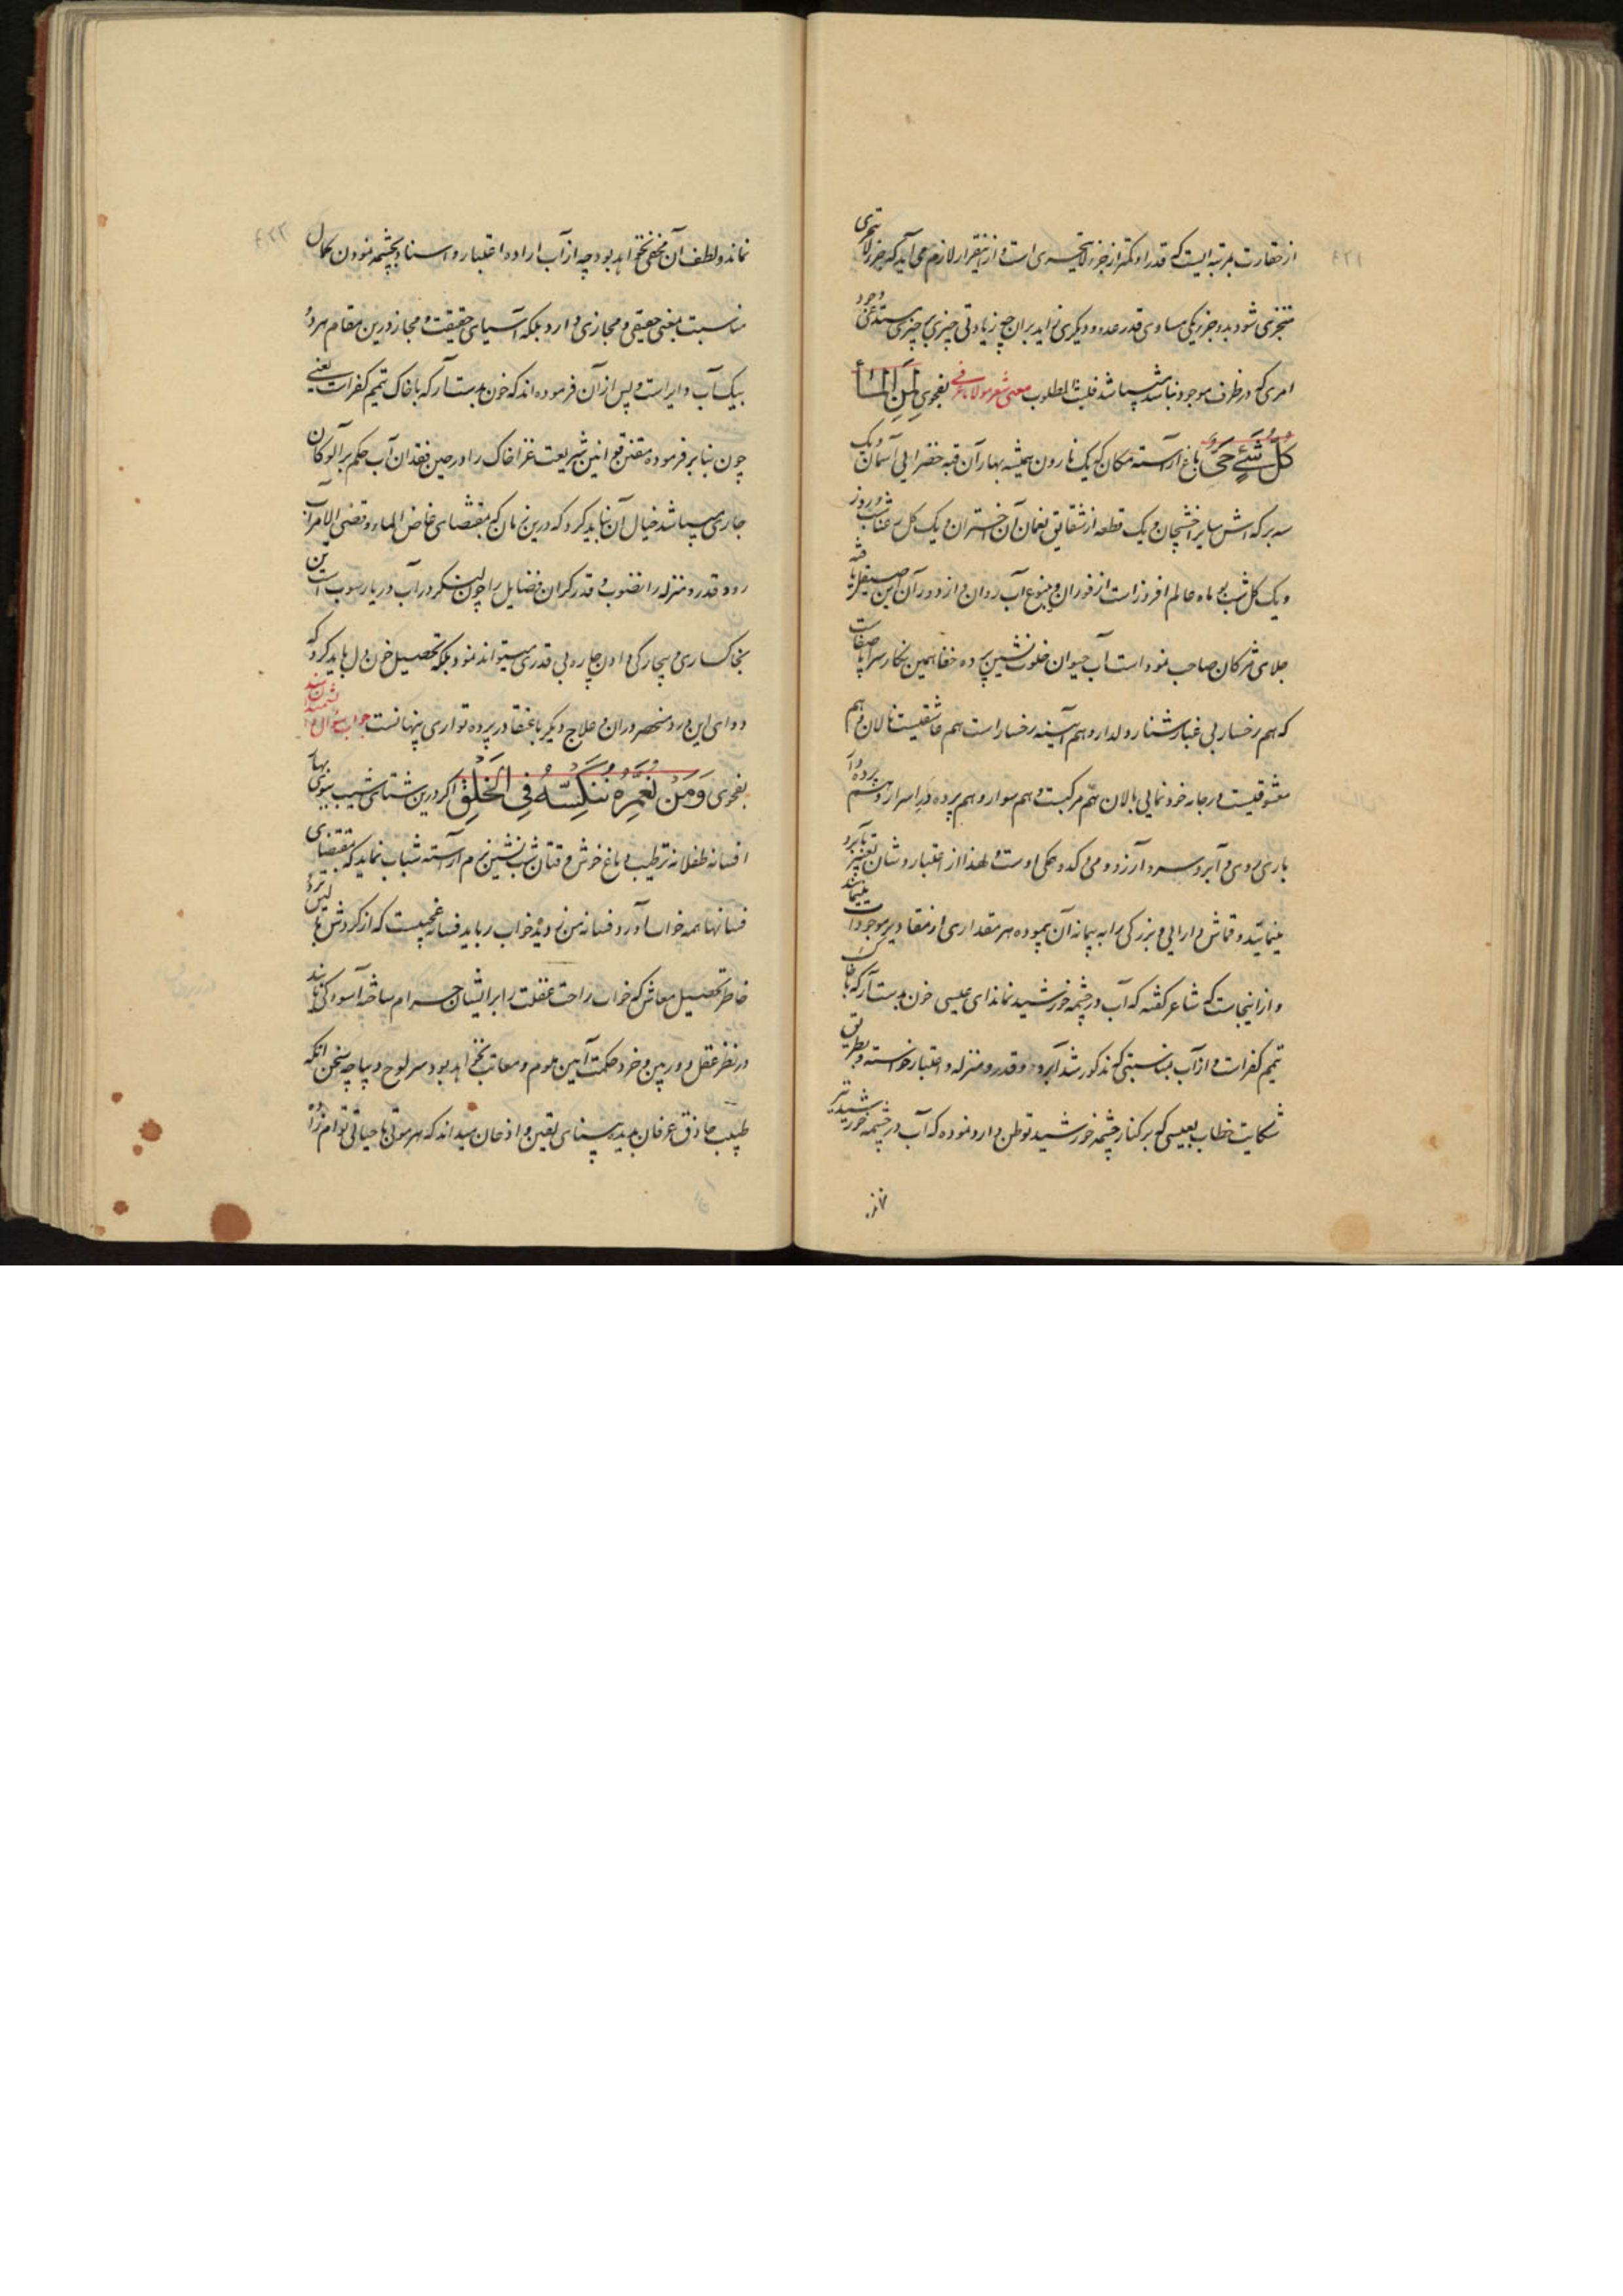 ۴۲۱
از حقارت بمرتبه ایست که قدر او کمتر از جزء لا یتجزی است و از اینقرار لازم می آید که جزء لا یتجزی
متجزی شود بدو جزء یکی مساوی قدر عدو و دیگری زاید بر آن چه زیادتی چیزی بر چیزی مستدعی وجود
امری که در ظرف موجود نباشد میباشد فثبت المطلوب معنی شعر مولانا عرفی بفحوی من المآء
کل شئ حی باغ آراسته مکان که یک نارون همیشه بهار آن قبه خضرایی آسمان و یک
سه برکه اش سایر اخشیجان و یک قطعه از شقایق نعمان آن اختران و یک کل رعنایش روز
و یک کل شب بو ماه عالم افروز است از فوران و ینبوع آب روان و از دور آن آیین صیقل یافته
جلای شرکان صاحب نمود است آب حیوان خلوت نشین پرده خفا همین نکار سراپا صفات
که هم رخسار بی غبارش دلدار و هم آیینه رخسار است هم عاشقیست نالان و هم
معشوقیست در جامه خودنمایی بالان هم مرکبست و هم سوار و هم پرده در اسرار و هم پرده دار
باری می و می و آبرو سرو آرزو و می و کدو همکی اوست و لهذا از اعتبار و شان تعبیر بآبرو
مینمایند و قماش دارایی و بزرکی را به پیمانه آن پیموده هر مقداری از مقادیر موجودات
و از اینجاست که شاعر کفته که آب در چشمه خورشید نماند ای عیسی خون بدست آر که با خاک
تیمم کفر است و از آب بمناسبتی که مذکور شد آبرو و قدر و منزله و اعتبار خواسته و بطریق
شکایت خطاب بعیسی که بر کنار چشمه خورشید توطن دارد نموده که آب در چشمه خورشید نیز
نماند
۴۲۲
نماند و لطف آن مخفی نخواهد بود چه از آب اراده اعتبار و اسناد بچشمه نمودن کمال
مناسبت بمعنی حقیقی و مجازی دارد بلکه آسیای حقیقت و مجاز درین مقام هر دو
بیک آب دایر است و پس از آن فرموده اند که خون بدست آر که با خاک تیمم کفر است یعنی
چون بنابر فرموده مقنن قوانین شریعت غرا خاک را در حین فقدان آب حکم بر آلودکان
جاری میباشد خیال آن نباید کرد که درین زمان که بمقتضای غاض الماء و قضی الامر آب
رود قدر و منزله را نضوب و قدر کران فضایل را چون لنکر در آب دریا رسوبست این
بخاکساری و بیچارکی دادن چاره بی قدری میتواند نمود بلکه تحصیل خون دل باید کرد که
دوای این درد منحصر در آن و علاج دیکر با عنقا در پرده تواری پنهانست جواب سؤال
بفحوی و من نعمره ننکسه فی الخلق اکر درین شتای شیب بسوی بهار
افسانه طفلانه ترطیب دماغ خوش وقتان شب نشین بزم آراسته شباب نماید که بمقتضای
فسانها همه خواب آورد فسانه من ز دیده خواب رباید فسانه عجبیست که از کردش
خاطر تحصیل معاش که خواب راحت غفلت را بر ایشان حرام ساخته آسوده کی یابند
در نظر عقل دوربین و خرد حکمت آیین ملوم و معاتب نخواهد بود سر لوح دیباچه سخن آنکه
طبیب حاذق عرفان بدیده بینای یقین و اذعان میداند که هر موتی با حیاتی توام زاده